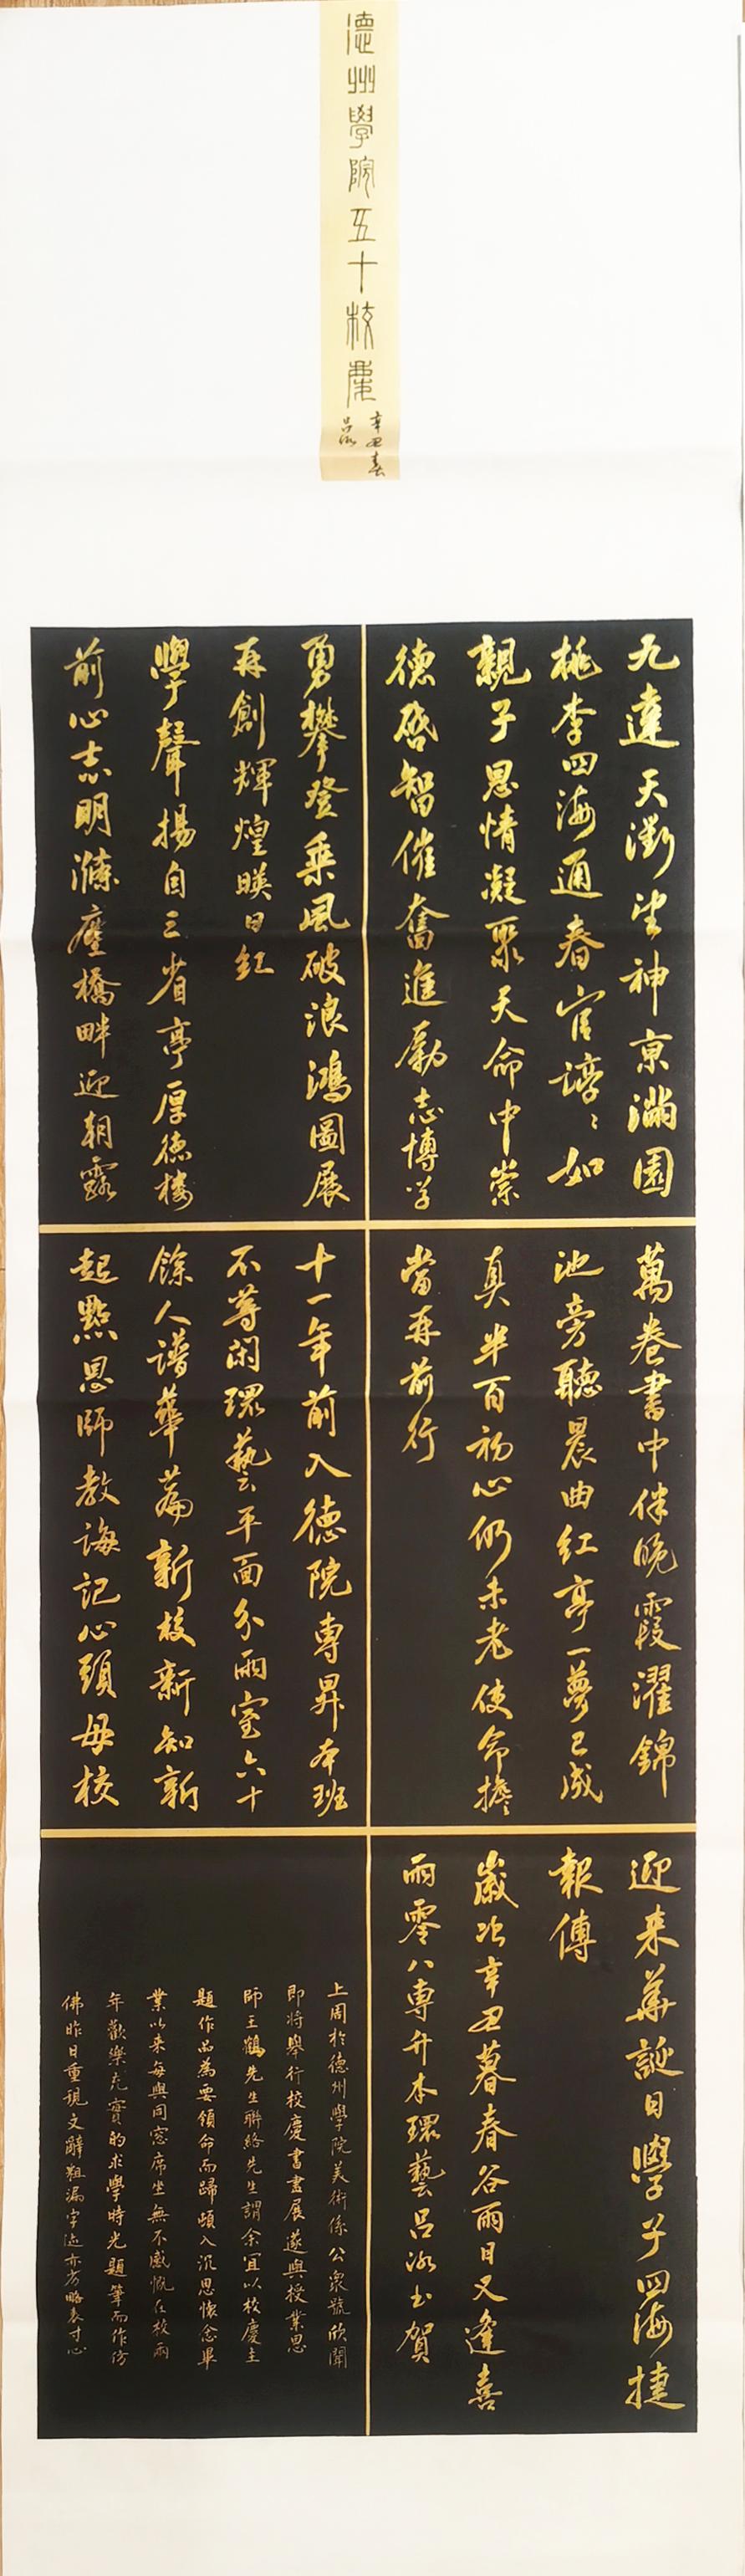 德州學院五十校慶
辛丑春
呂泳
九達天衢望神京滿園
桃李四海通春官諄〻如
親子恩情凝聚天命中崇
德啓智催奮進勵志博学
勇攀登乘風破浪鴻圖展
再創輝煌暎日紅
學聲揚自三省亭厚德樓
前心志明滌塵橋畔迎朝露
萬卷書中伴晚霞濯錦
池旁聽晨曲紅亭一夢已成
真半百初心仍未老使命擔
當再前行
十一年前入德院專昇本班
不尋闲環藝平面分兩室六十
餘人譜華篇新校新知新
起點恩師教誨記心頭母校
迎来華誕日學子四海捷
報傳
歲次辛丑暮春谷雨日又逢喜
雨零八専升本環藝呂泳书賀
上周於德州學院美術係公衆號欣聞
即將舉行校慶書畫展遂與授業恩
師王鶴先生聯絡先生謂余宜以校慶主
題作品為要領命而歸頓入沉思懷念畢
業以来每與同窓席坐無不感慨在校兩
年歡樂充實的求學時光題筆而作仿
佛昨日重現文辭粗漏字迹亦劣略表寸心